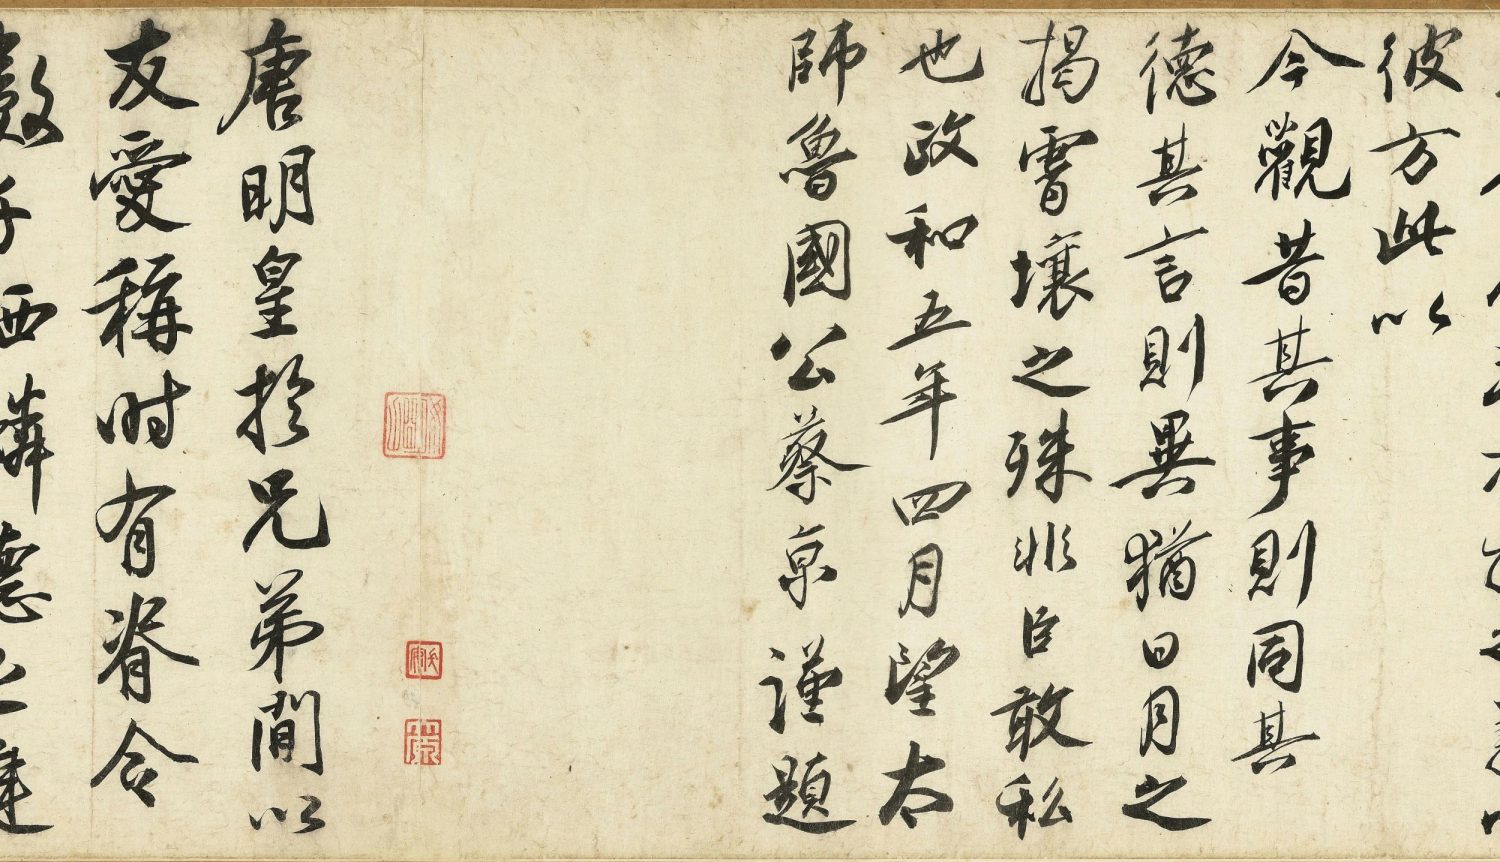 彼方此以
今觀昔其事則同其
德其言則異猶日月之
揭霄壤之殊非臣敢私
也政和五年四月望太
師魯國公蔡京謹題
唐明皇於兄弟間以
友愛稱時有脊令
數千西麟德之